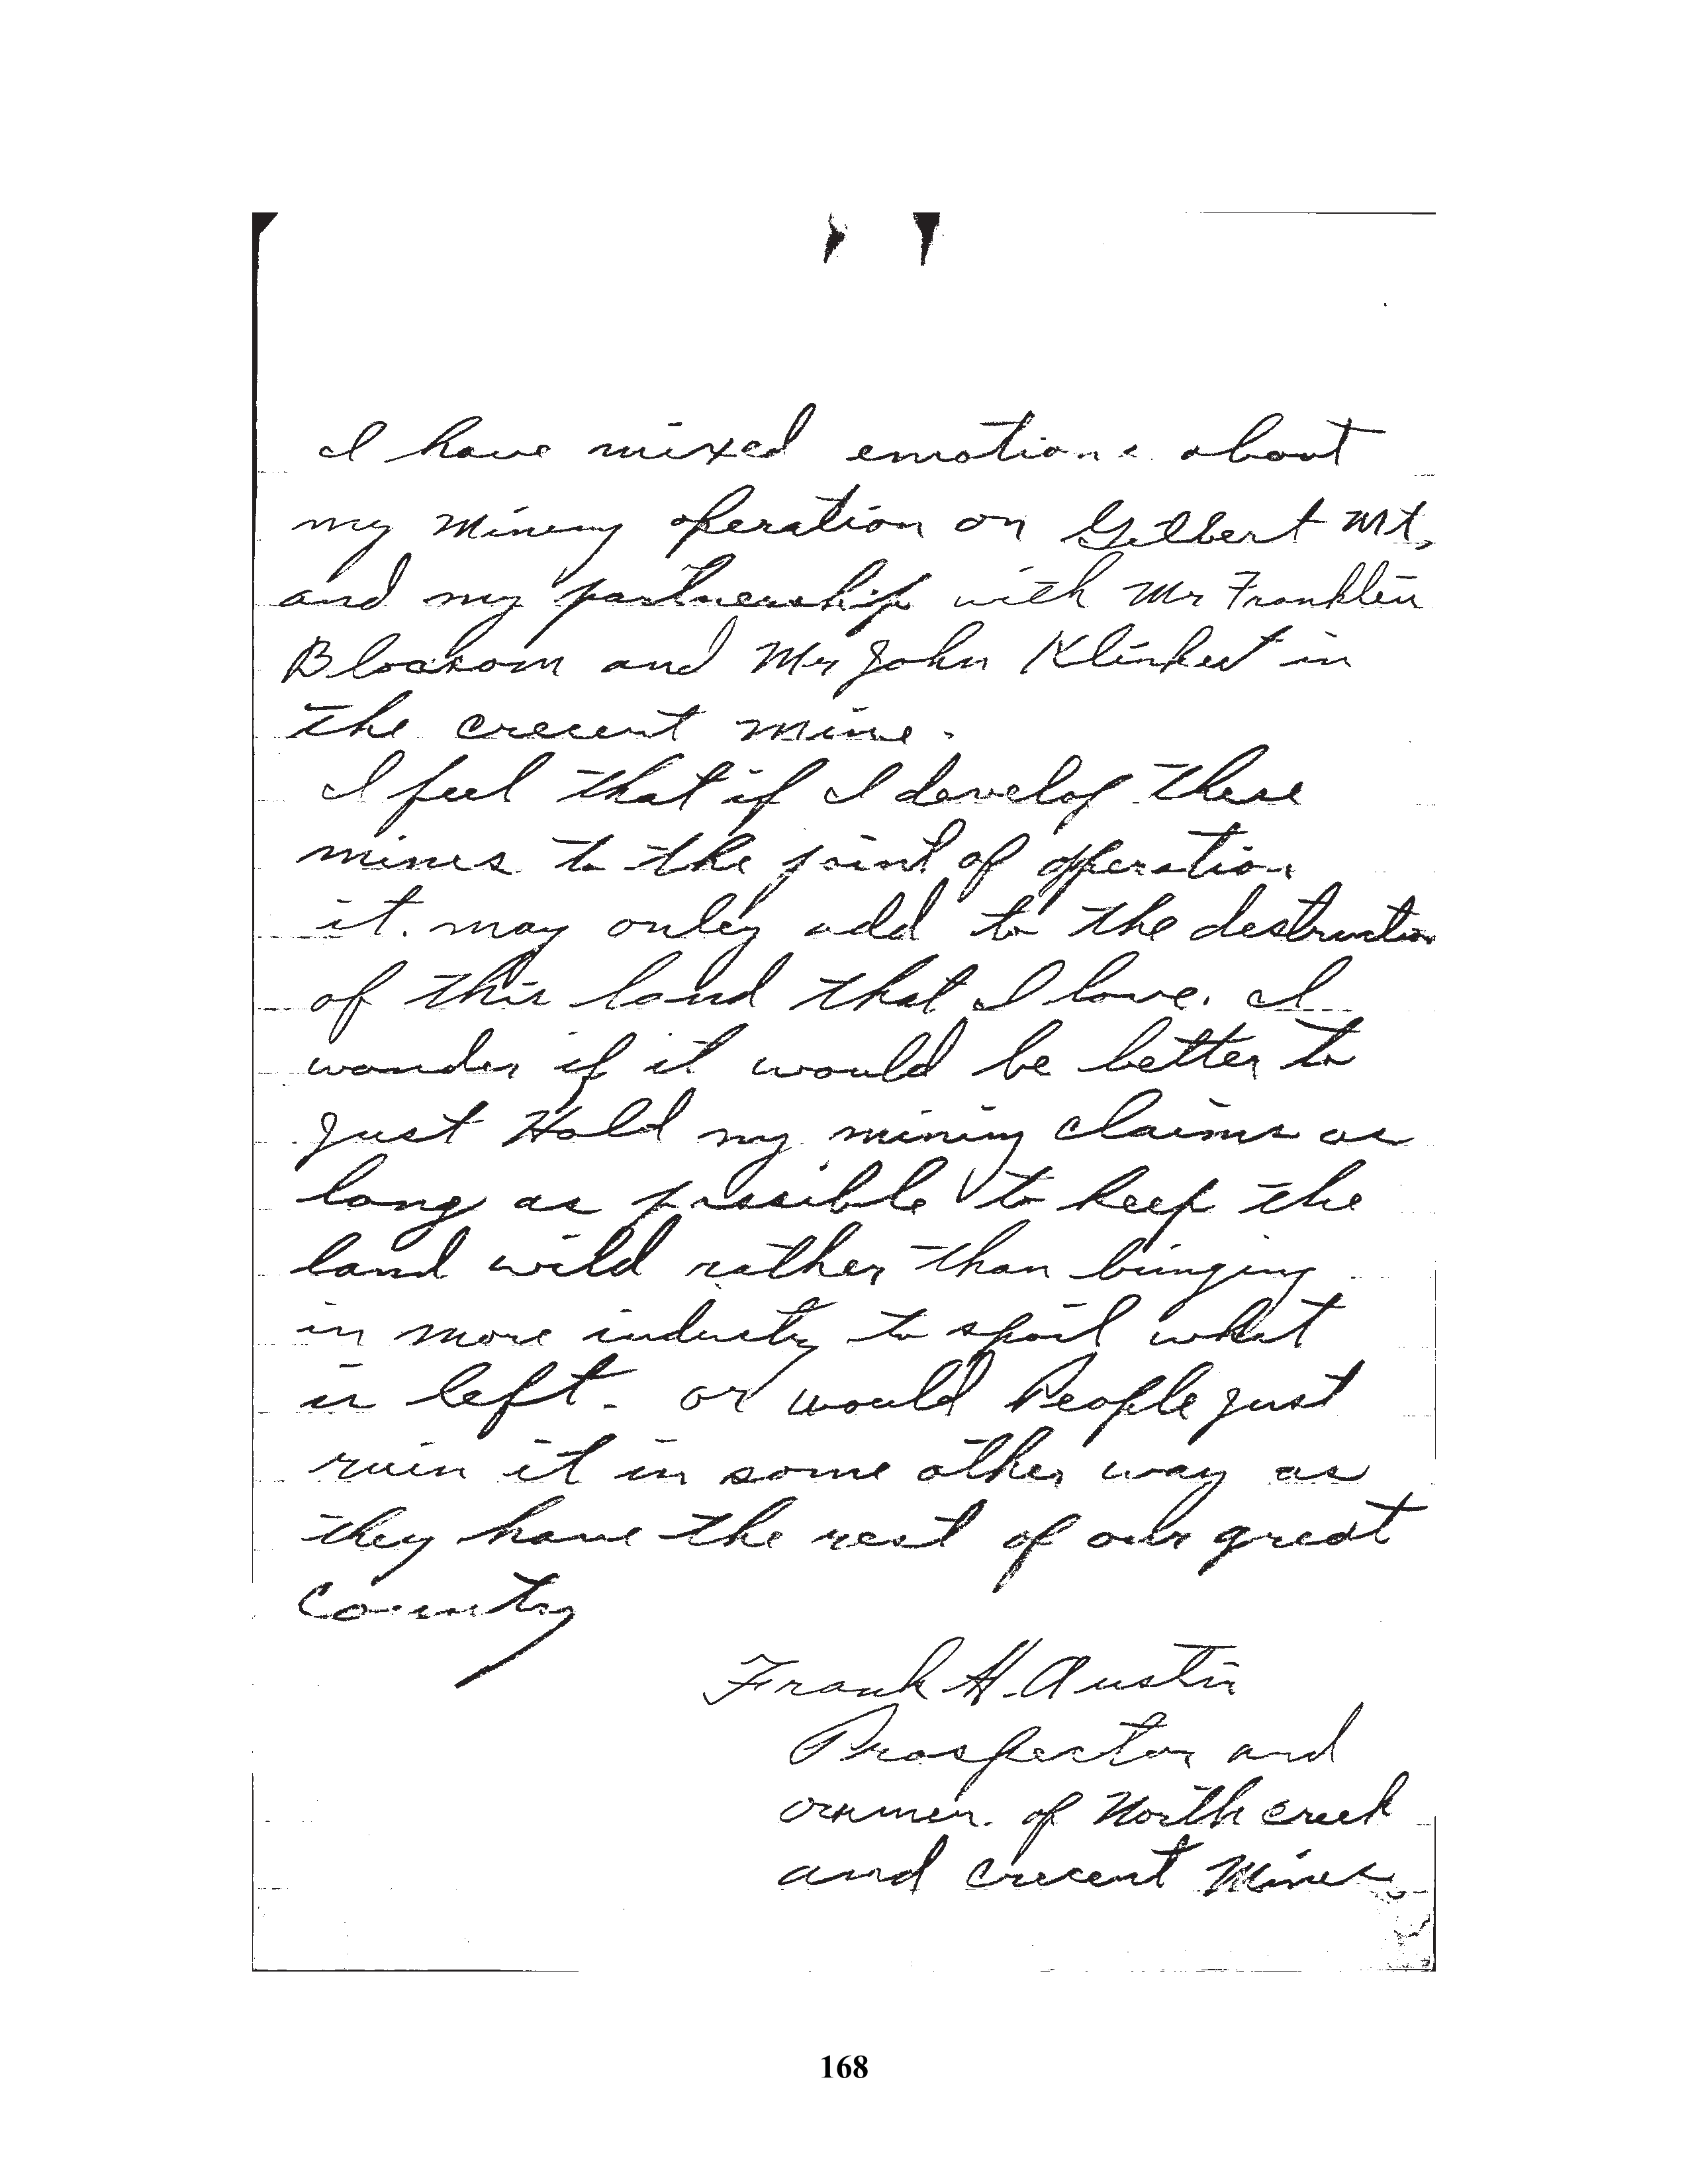 I have mixed emotions about
my mining operation on Gilbert Mt,
and my partnership with Mr Franklin
Blossom and Mr John Klinkert in
the crecent mine.
I feel that if I develop these
mines to the point of operation
it may onley add to the destruction
of this land that I love. I
wonder if it would be better to
just Hold my mining claims as
long as possible to keep the
land wild rather than bringing
in more industry to spoil what
is left. or would People just
ruin it in some other way as
they have the rest of our great
Country
Frank H. Austin
Prospector and
owner of North creek
and crecent Mines
168